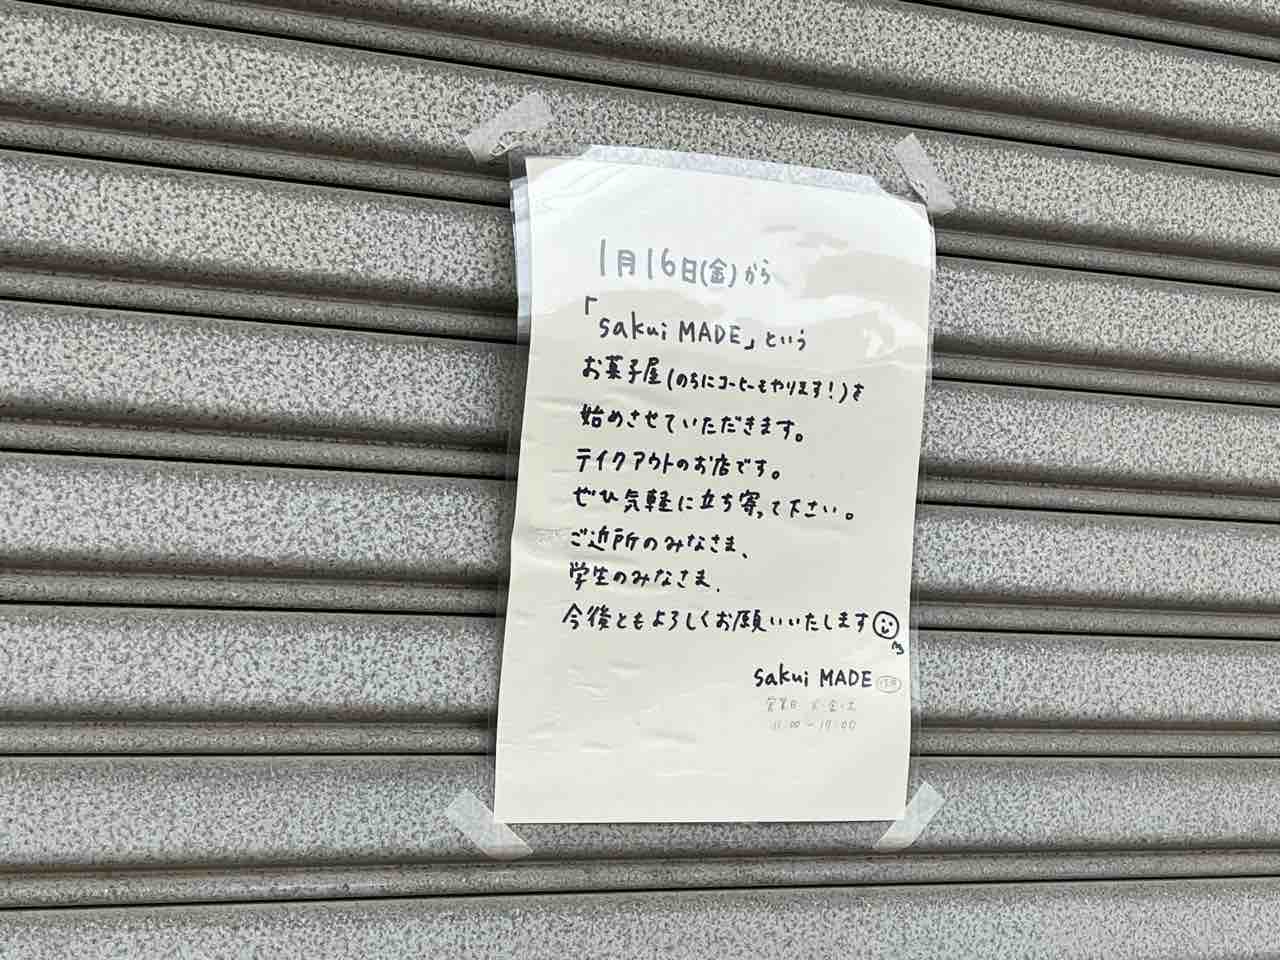 1月16日(金)から
「sakui MADE」という
お菓子屋(のちにコーヒーもやります!)を
始めさせていただきます。
テイクアウトのお店です。
ぜひ気軽に立ち寄って下さい。
ご近所のみなさま、
学生のみなさま、
今後ともよろしくお願いいたします
sakui MADE
営業日 金・土
11:00-17:00